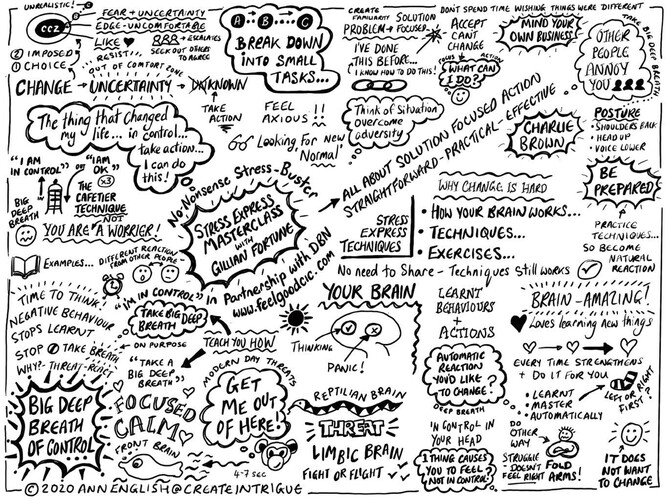 UNREALISTIC!
CCZ
FEAR + UNCERTAINTY
EDGE-UNCOMFORTABLE
LIKE
BBB + ESCALATES
RESIST
SEEK OUT OTHERS
TO AGREE
② IMPOSED
① CHOICE
OUT OF COMFORT ZONE
CHANGE → UNCERTAINTY → UNKNOWN
A B C
BREAK DOWN
INTO SMALL
TASKS...
CREATE
FAMILIARITY
SOLUTION
PROBLEM → FOCUSED
I'VE DONE
THIS BEFORE...
I KNOW HOW TO DO THIS!
DON'T SPEND TIME WISHING THINGS WERE DIFFERENT
ACCEPT
CAN'T
CHANGE
FOCUS + ACTION
WHAT CAN
I DO?
MIND YOUR
OWN BUSINESS
TAKE BIG DEEP BREATH
OTHER
PEOPLE
ANNOY
YOU
The thing that changed
my life... in control...
take action...
I can do
this!
TAKE
ACTION
FEEL
AXIOUS !!
Looking for New
"Normal"
Think of Situation
overcome
adversity
ALL ABOUT SOLUTION FOCUSED ACTION
STRAIGHTFORWARD - PRACTICAL - EFFECTIVE
CHARLIE
BROWN
POSTURE
• SHOULDERS BACK
• HEAD UP
• VOICE LOWER
BE
PREPARED
PRACTICE
TECHNIQUES...
SO BECOME
NATURAL
REACTION
"I AM
IN CONTROL"
OR
"I AM
OK"
x3
BIG
DEEP
BREATH
THE
CAFETIER
TECHNIQUE
NOT
YOU ARE A WORRIER!
EXAMPLES...
DIFFERENT REACTION
FROM OTHER PEOPLE
No Nonsense Stress-Buster
STRESS EXPRESS
MASTERCLASS
WITH
GILLIAN FORTUNE
in Partnership with DBN
www.feelgoodcic.com
STRESS
EXPRESS
TECHNIQUES
WHY CHANGE IS HARD
• HOW YOUR BRAIN WORKS...
• TECHNIQUES...
• EXERCISES...
No need to Share - Techniques still works
TIME TO THINK!
NEGATIVE BEHAVIOUR
STOPS LEARNT
STOP TAKE BREATH
WHY? - THREAT - REACT
"I'M IN CONTROL"
TAKE BIG DEEP
BREATH
ON PURPOSE
"TAKE A
BIG DEEP
BREATH"
TEACH YOU HOW
YOUR BRAIN
THINKING
PANIC!
LEARNT
BEHAVIOURS
+
ACTIONS
BRAIN-AMAZING!
Loves learning new things
EVERY TIME STRENGTHENS
+ DO IT FOR YOU
• LEARNT
• MASTER
• AUTOMATICALLY
LEFT OR RIGHT FIRST?
BIG DEEP
BREATH
OF CONTROL
FOCUSED
CALM
FRONT BRAIN
MODERN DAY THREATS
GET
ME OUT
OF HERE!
4-7 SEC
REPTILIAN BRAIN
THREAT
LIMBIC BRAIN
FIGHT OR FLIGHT
AUTOMATIC
REACTION
YOU'D LIKE
TO CHANGE?
DEEP BREATH
'N CONTROL IN
YOUR HEAD
1 THING CAUSES
YOU TO FEEL
NOT IN CONTROL!
DO
OTHER
WAY
STRUGGLE
- DOESN'T
FEEL RIGHT
FOLD
ARMS!
IT DOES
NOT WANT
TO CHANGE
© 2020 ANN ENGLISH @ CREATE INTRIGUE